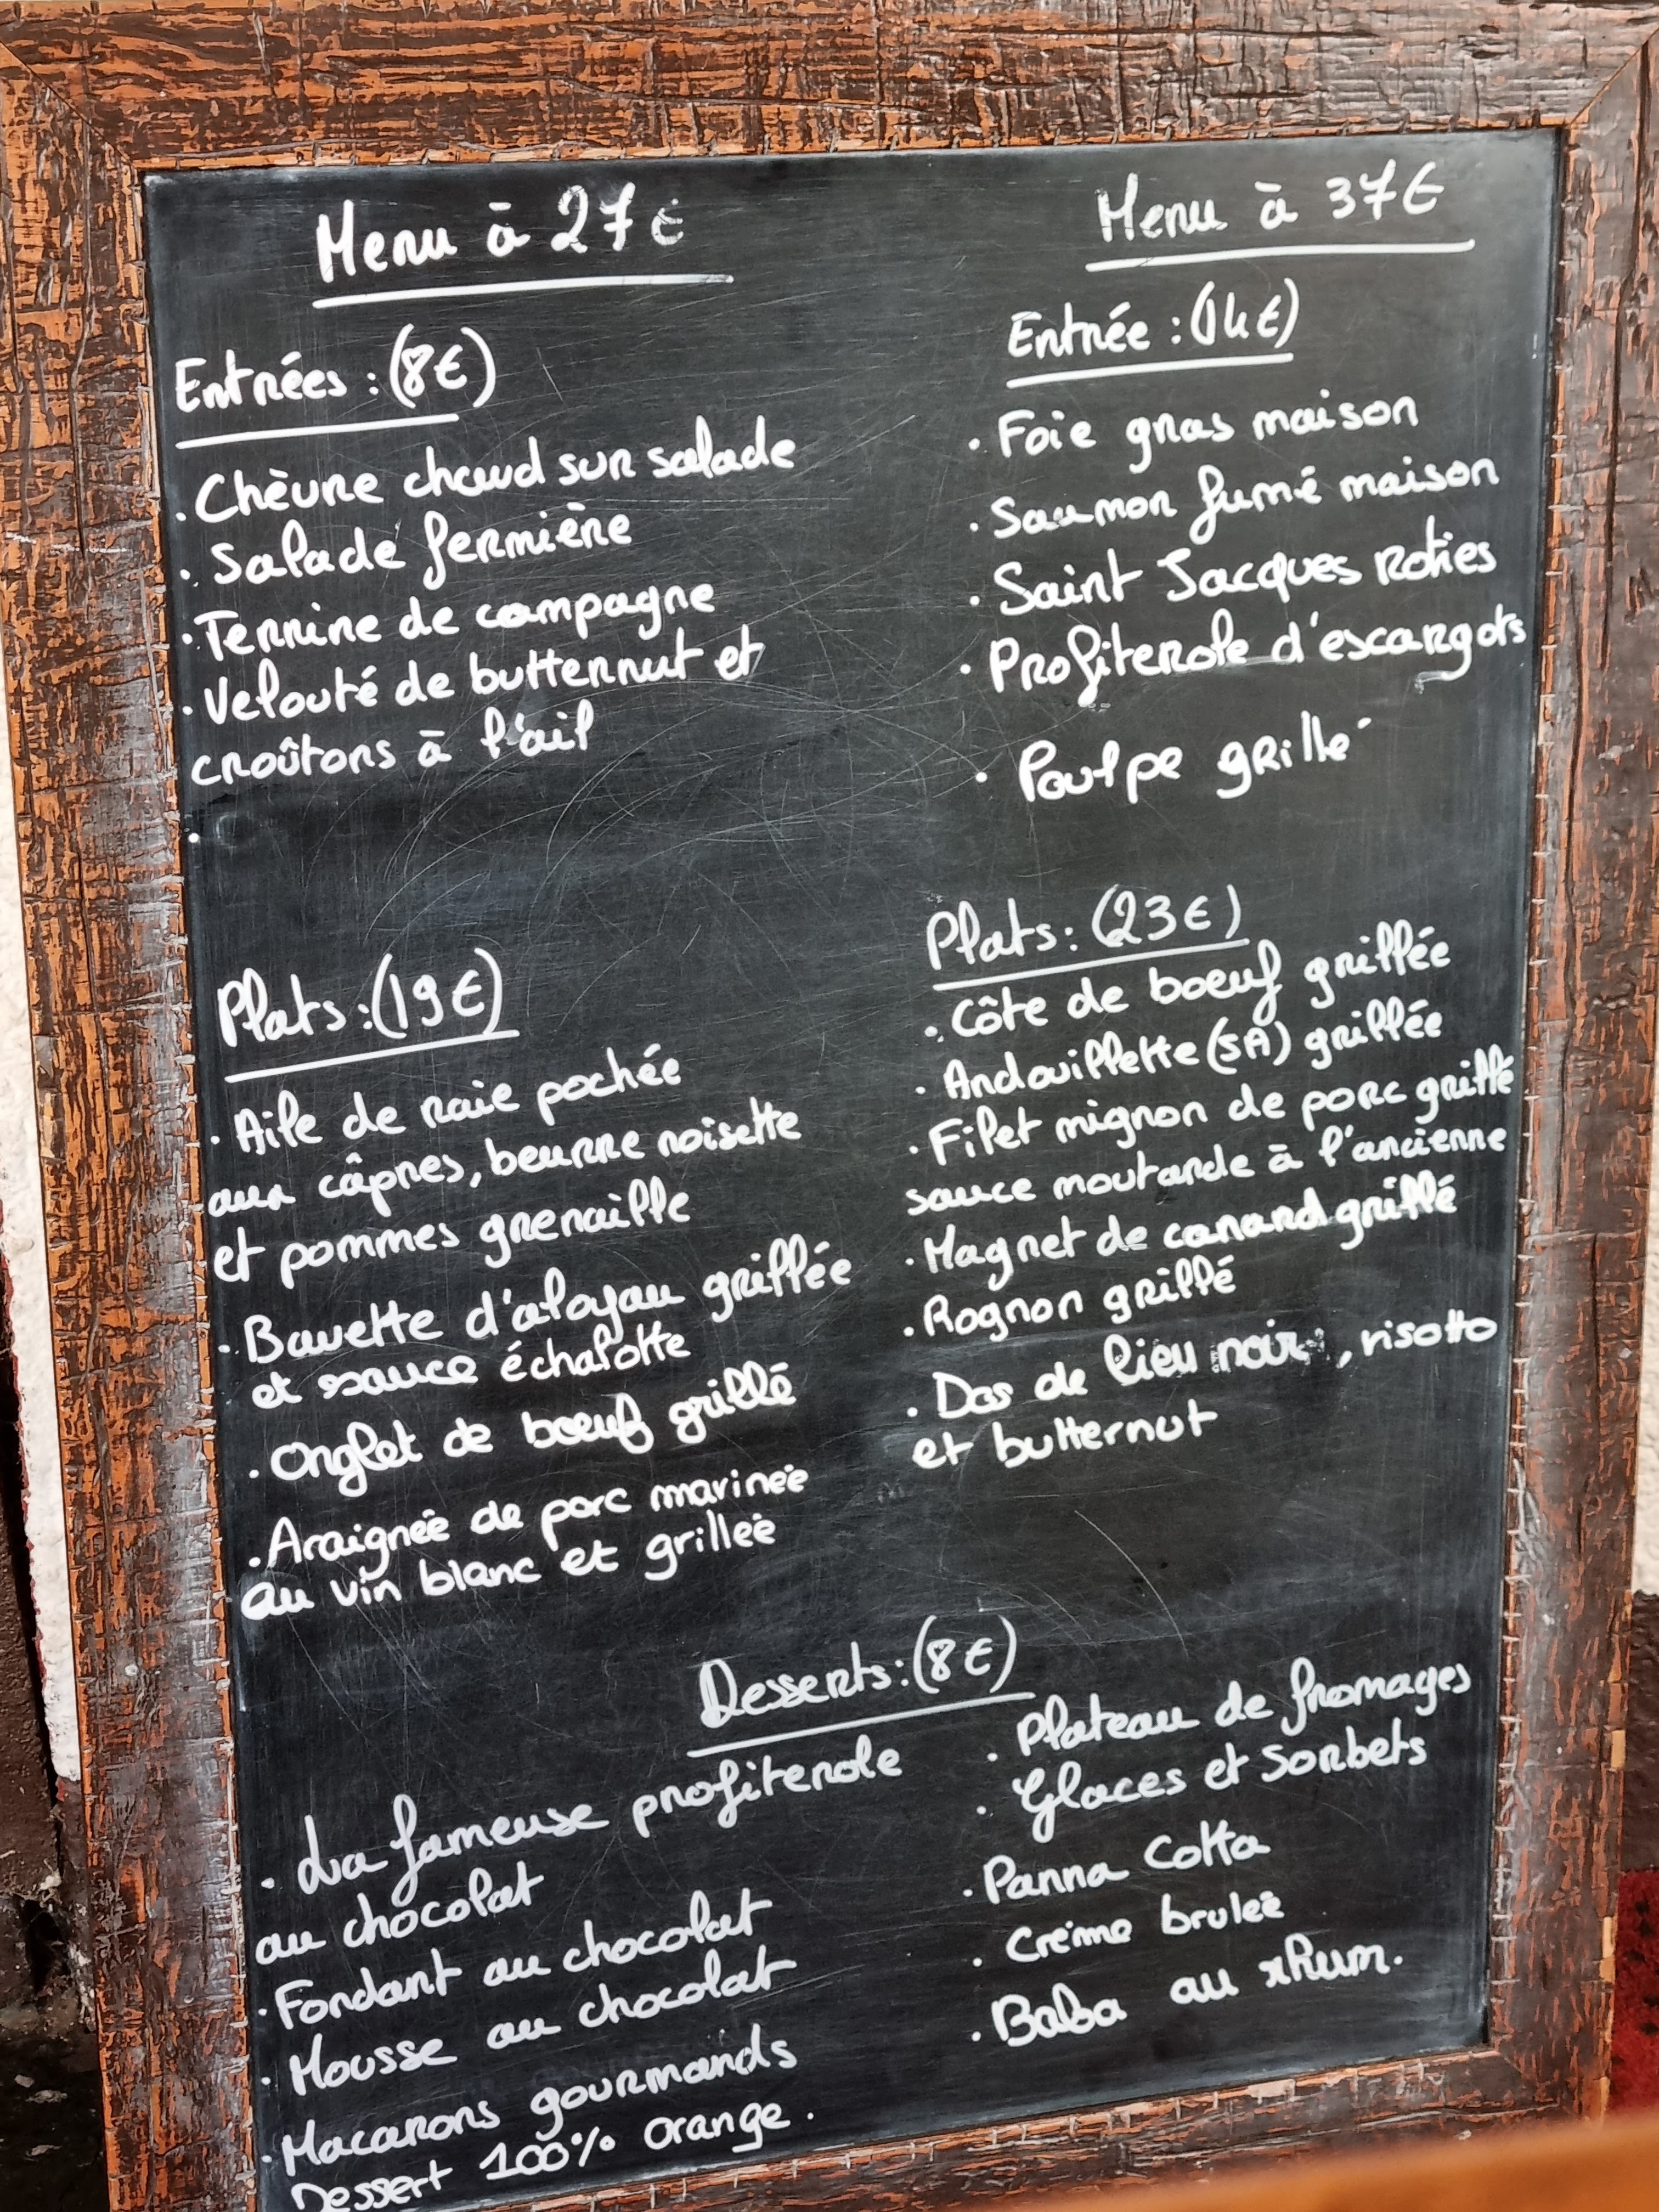 Menu à 27€
Entrées : (8€)
. Chèvre chaud sur salade
. Salade fermière
. Terrine de campagne
. Velouté de butternut et
croûtons à l'ail
.
Plats : (19€)
. Aile de raie pochée
aux câpres, beurre noisette
et pommes grenaille
. Bavette d'aloyau grillée
et sauce échalotte
. Onglet de boeuf grillé
. Araignée de porc marinée
au vin blanc et grillée
Menu à 37€
Entrée : (14€)
. Foie gras maison
. Saumon fumé maison
. Saint Jacques roties
. Profiterole d'escargots
. Poulpe grillé
Plats : (23€)
. Côte de boeuf grillée
. Andouillette (5A) grillée
. Filet mignon de porc grillé
sauce moutarde à l'ancienne
. Magret de canard grillé
. Rognon grillé
. Dos de lieu noir, risotto
et butternut
Desserts : (8€)
. La fameuse profiterole
au chocolat
. Fondant au chocolat
. Mousse au chocolat
. Macarons gourmands
Dessert 100% orange.
. Plateau de fromages
. Glaces et Sorbets
. Panna Cotta
. Crème brulée
. Baba au rhum.